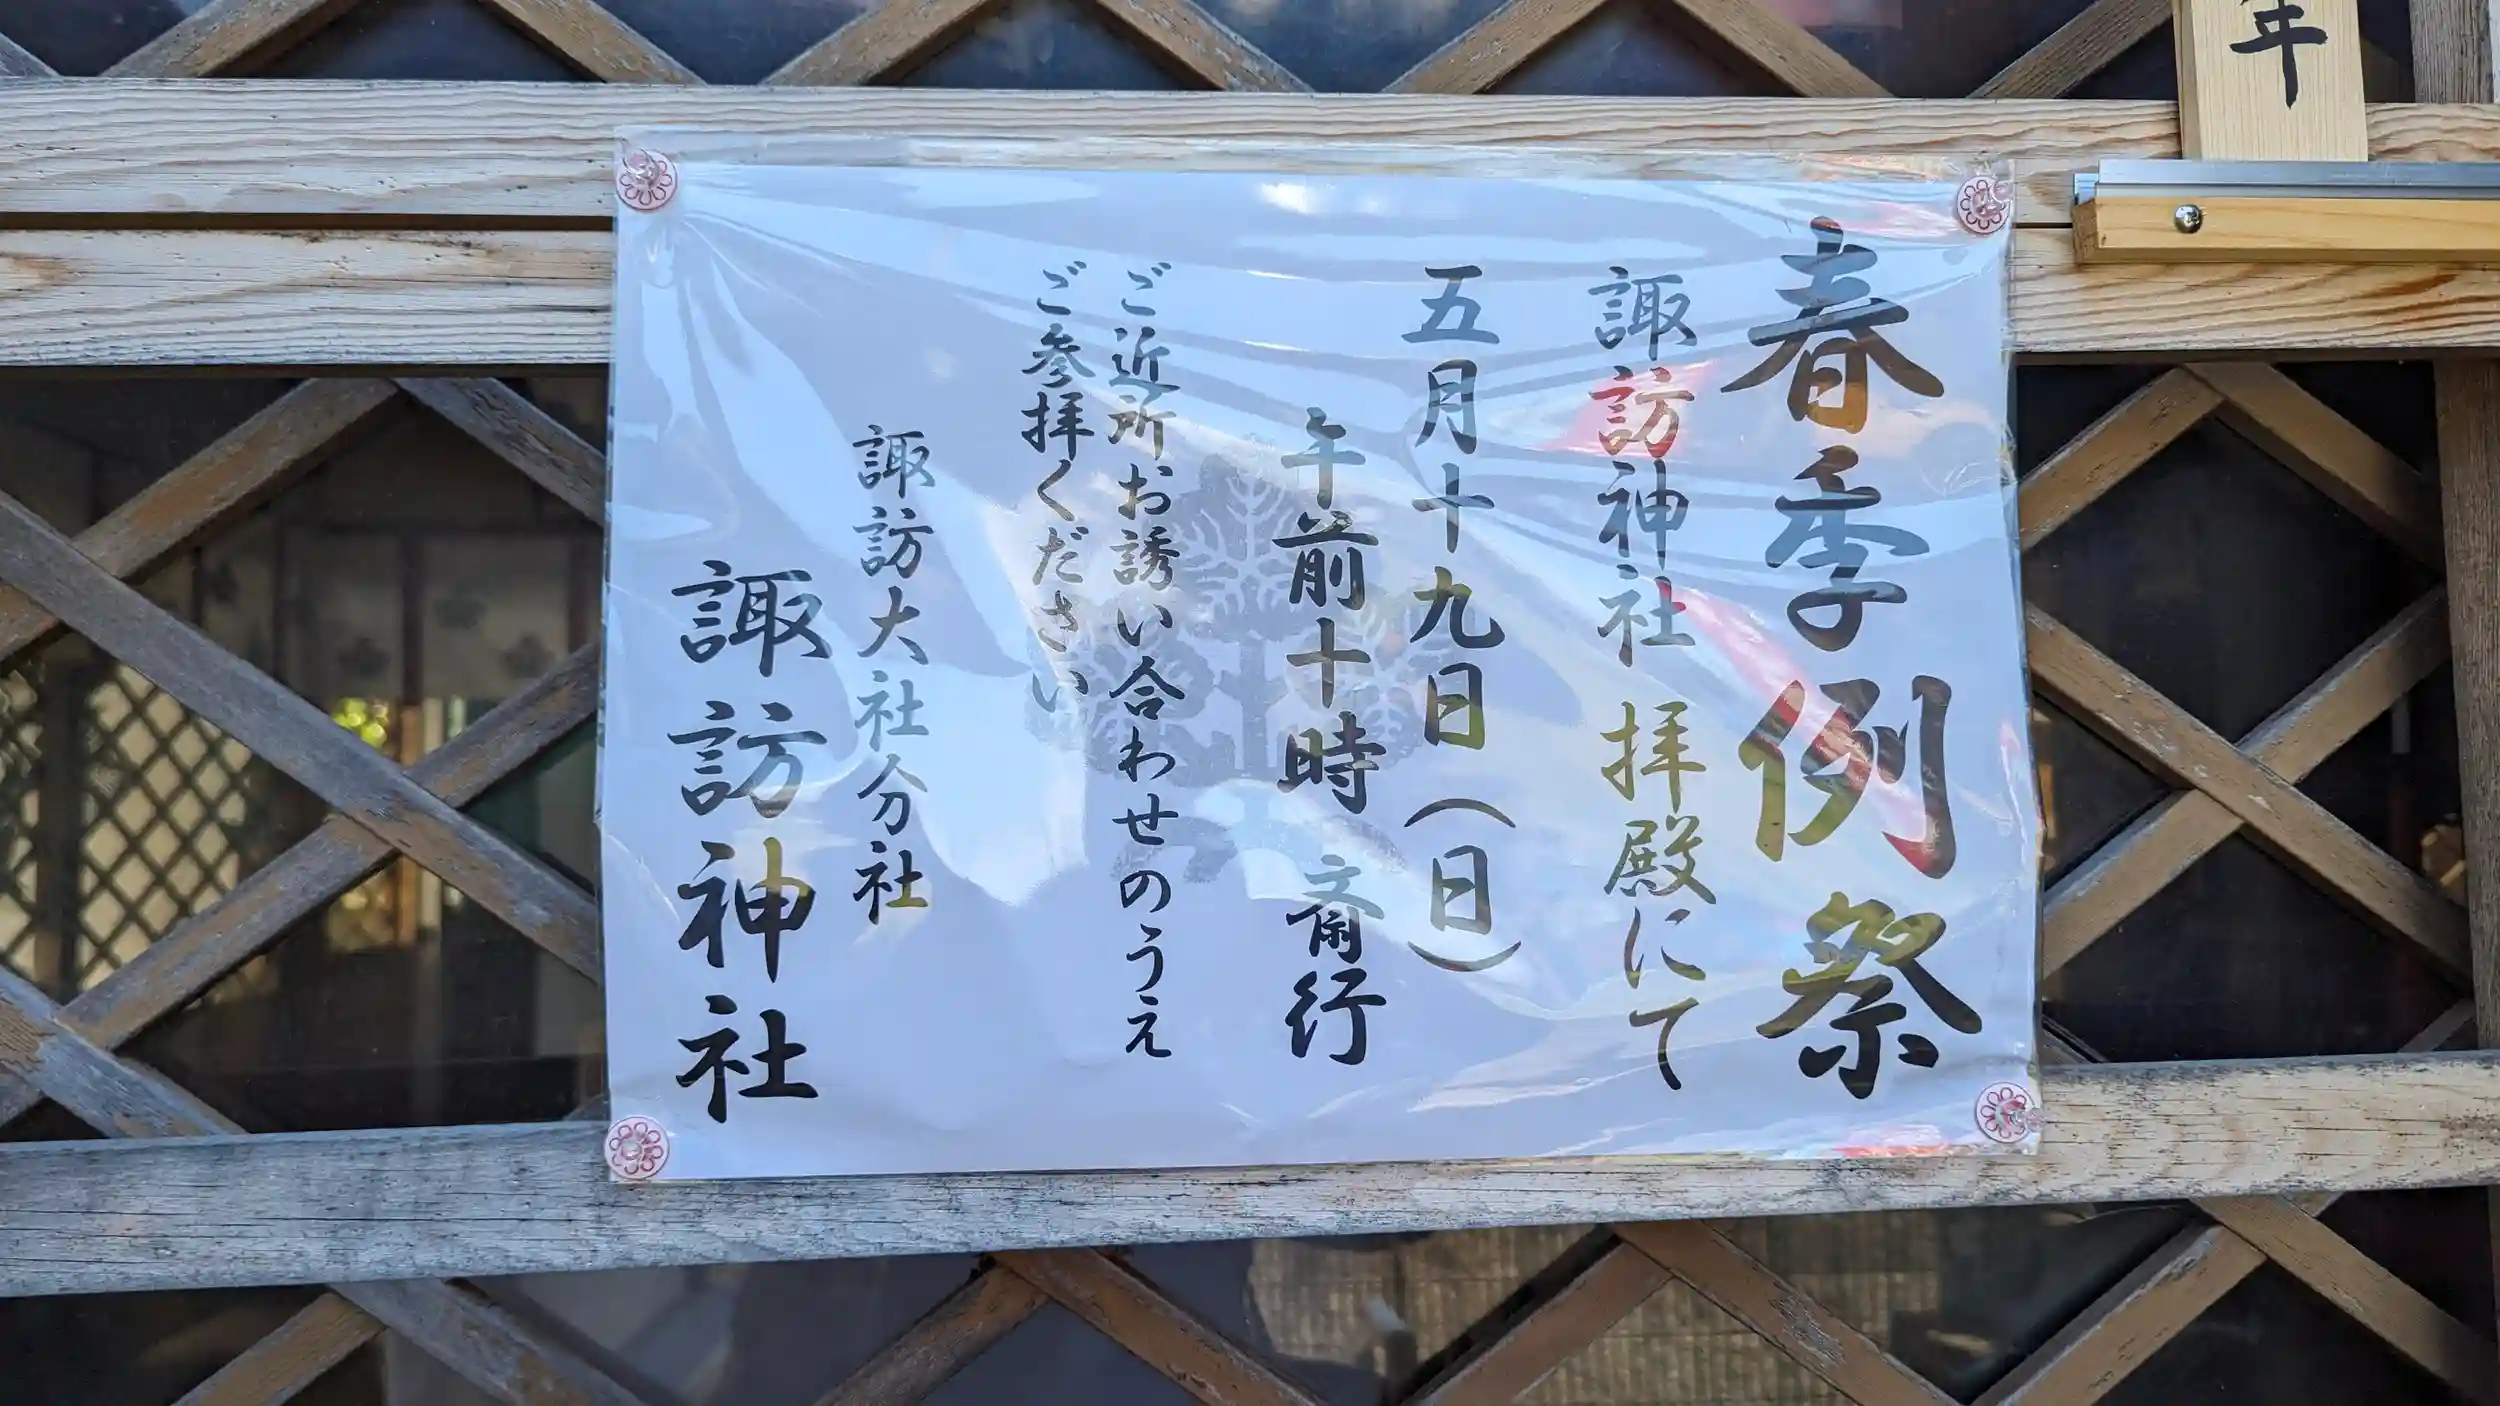 春季例祭
諏訪神社 拝殿にて
五月十九日(日)
午前十時 斎行
ご近所お誘い合わせのうえ
ご参拝ください
諏訪大社分社
諏訪神社
年